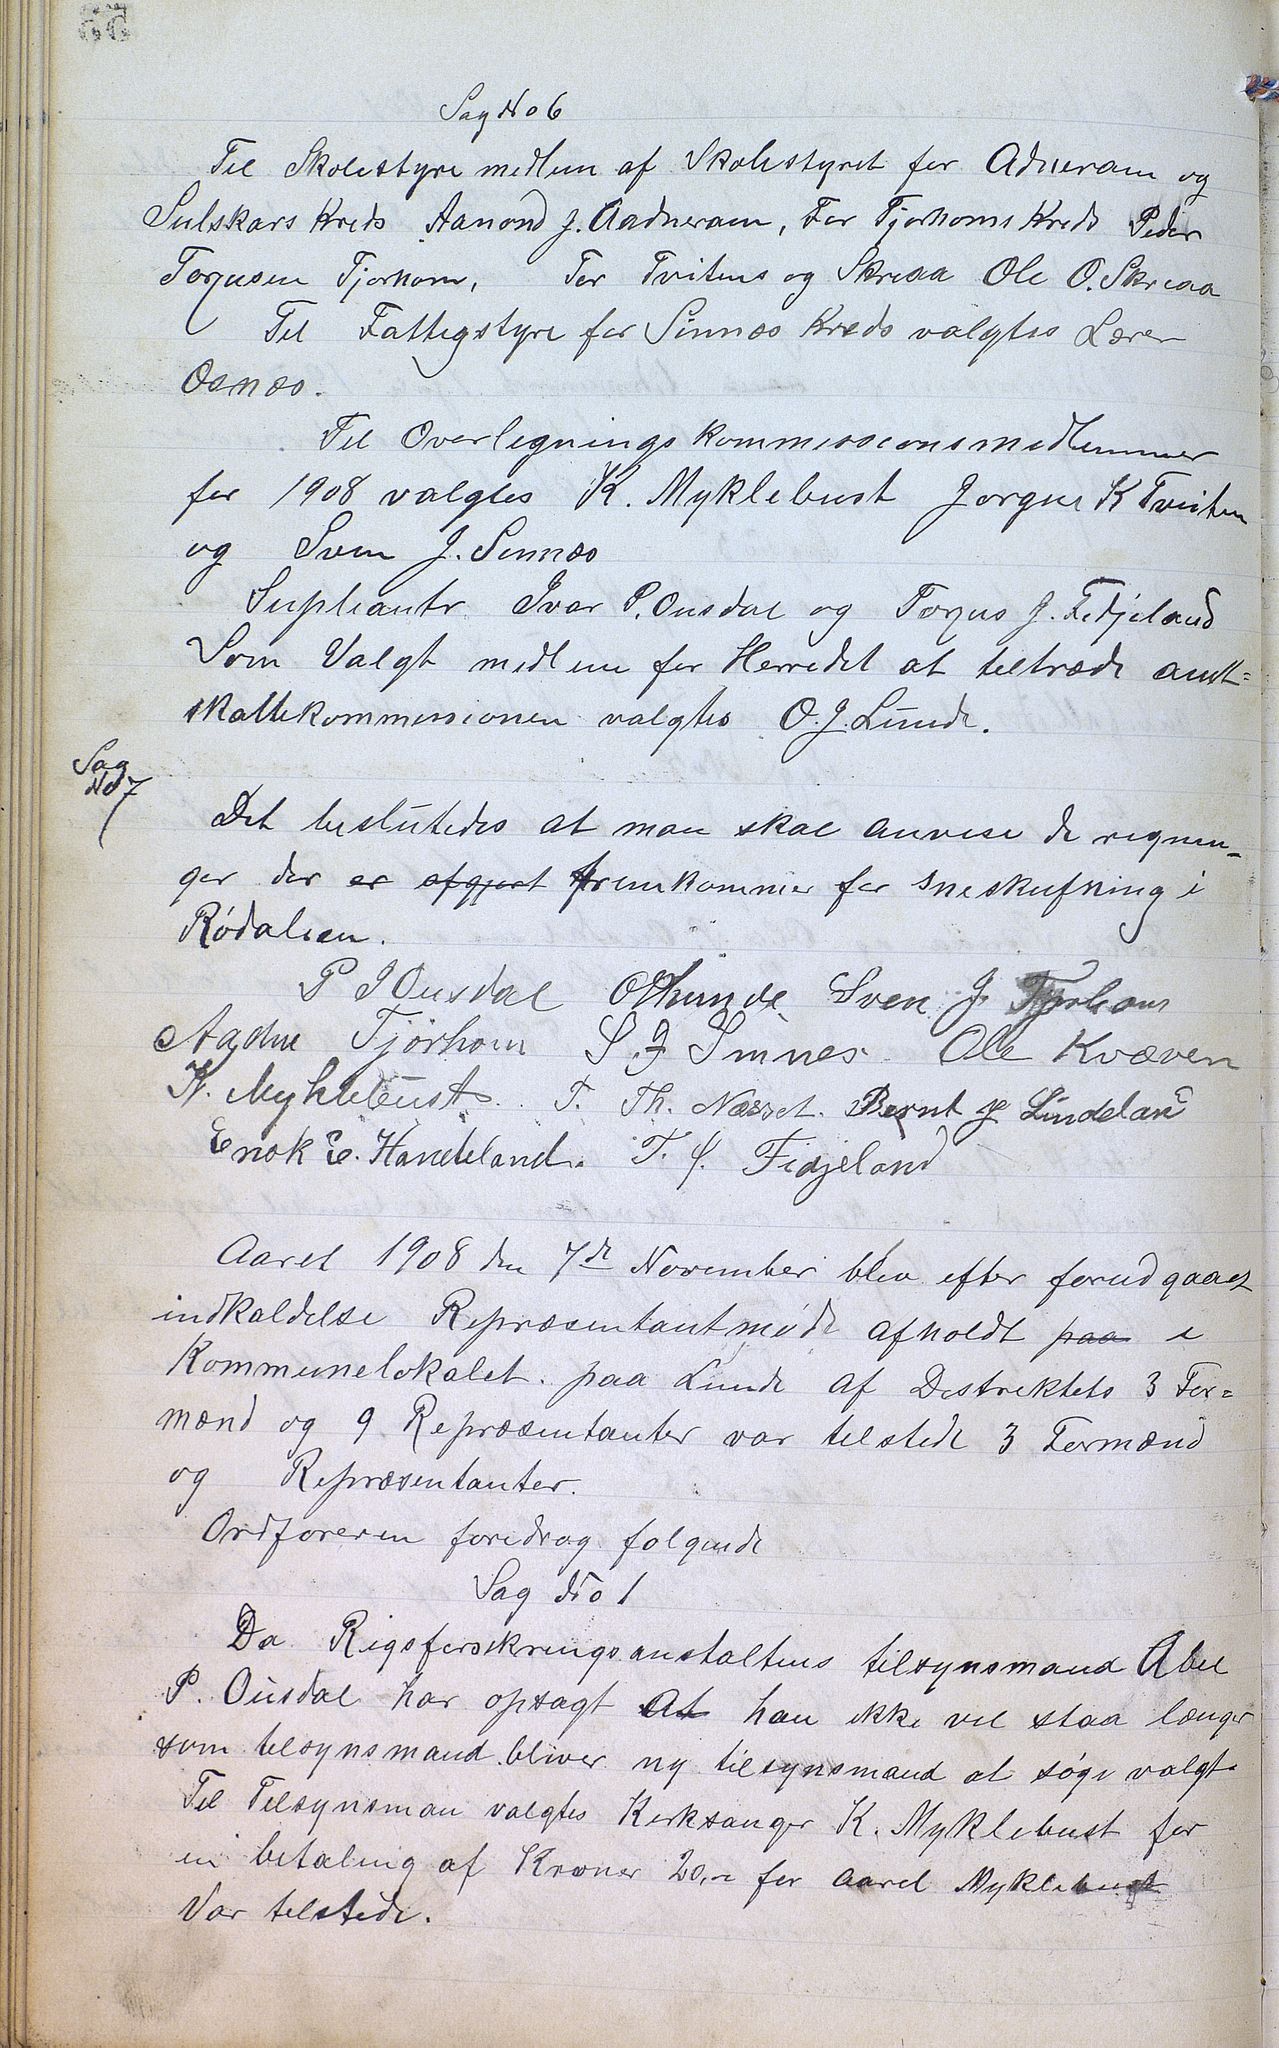 Sag No 6
Til Skolestyre medlem af Skolestyret for Adneram og
Sulskars Kreds Aanond J. Aadneram, For Tjorhoms Kreds Peder
Torjusen Tjorhom, For Tvitens og Skreaa Ole O. Skreaa
Til Fattigstyre for Sinnes Kreds valgtes Lærer
Osnæs.
Til Overlignings kommissionsmedlemmer
for 1908 valgtes K. Myklebust Jorgen K Tveiten
og Sven J. Sinnes
Supleantr Ivar P. Ousdal og Torjus J. Fidjeland
Som Valgt medlem for Herredet at teltræde amt=
skattekommissionen valgtes O. J. Lunde.
Sag
No 7
Det beslutedes at man skal anvise de regnin-
ger der er afgjort fremkommer for sneskufning i
Rødalien.
P J Ousdal O Lunde Sven J. Tjorhom
Aadne Tjørhom S. J Sinnes. Ole Kvæven
K. Myklebust. T. Th. Nesset. Bernt J Lindeland
Enok E. Handeland. T. J. Fidjeland
Aaret 1908 den 7de November blev efter forudgaaet
indkaldelse Repræsentantmøde afholdt paa i
Kommunelokalet. paa Lunde af Destriktets 3 For=
mænd og 9 Repræsentanter var telstede 3 Formænd
og Repræsentanter.
Ordforeren foredrog folgende
Sag No 1
Da Rigsforsikringsanstaltens tilsynsmand Abel
P. Ousdal har opsagt At han ikke vel staa længer
som telsynsmand bliver ny tilsynsmand at søge valgt.
Til Telsynsman valgtes Kerksanger K. Myklebust for
en betaling af Kroner 20,- for aaret Myklebust
Var telstede.